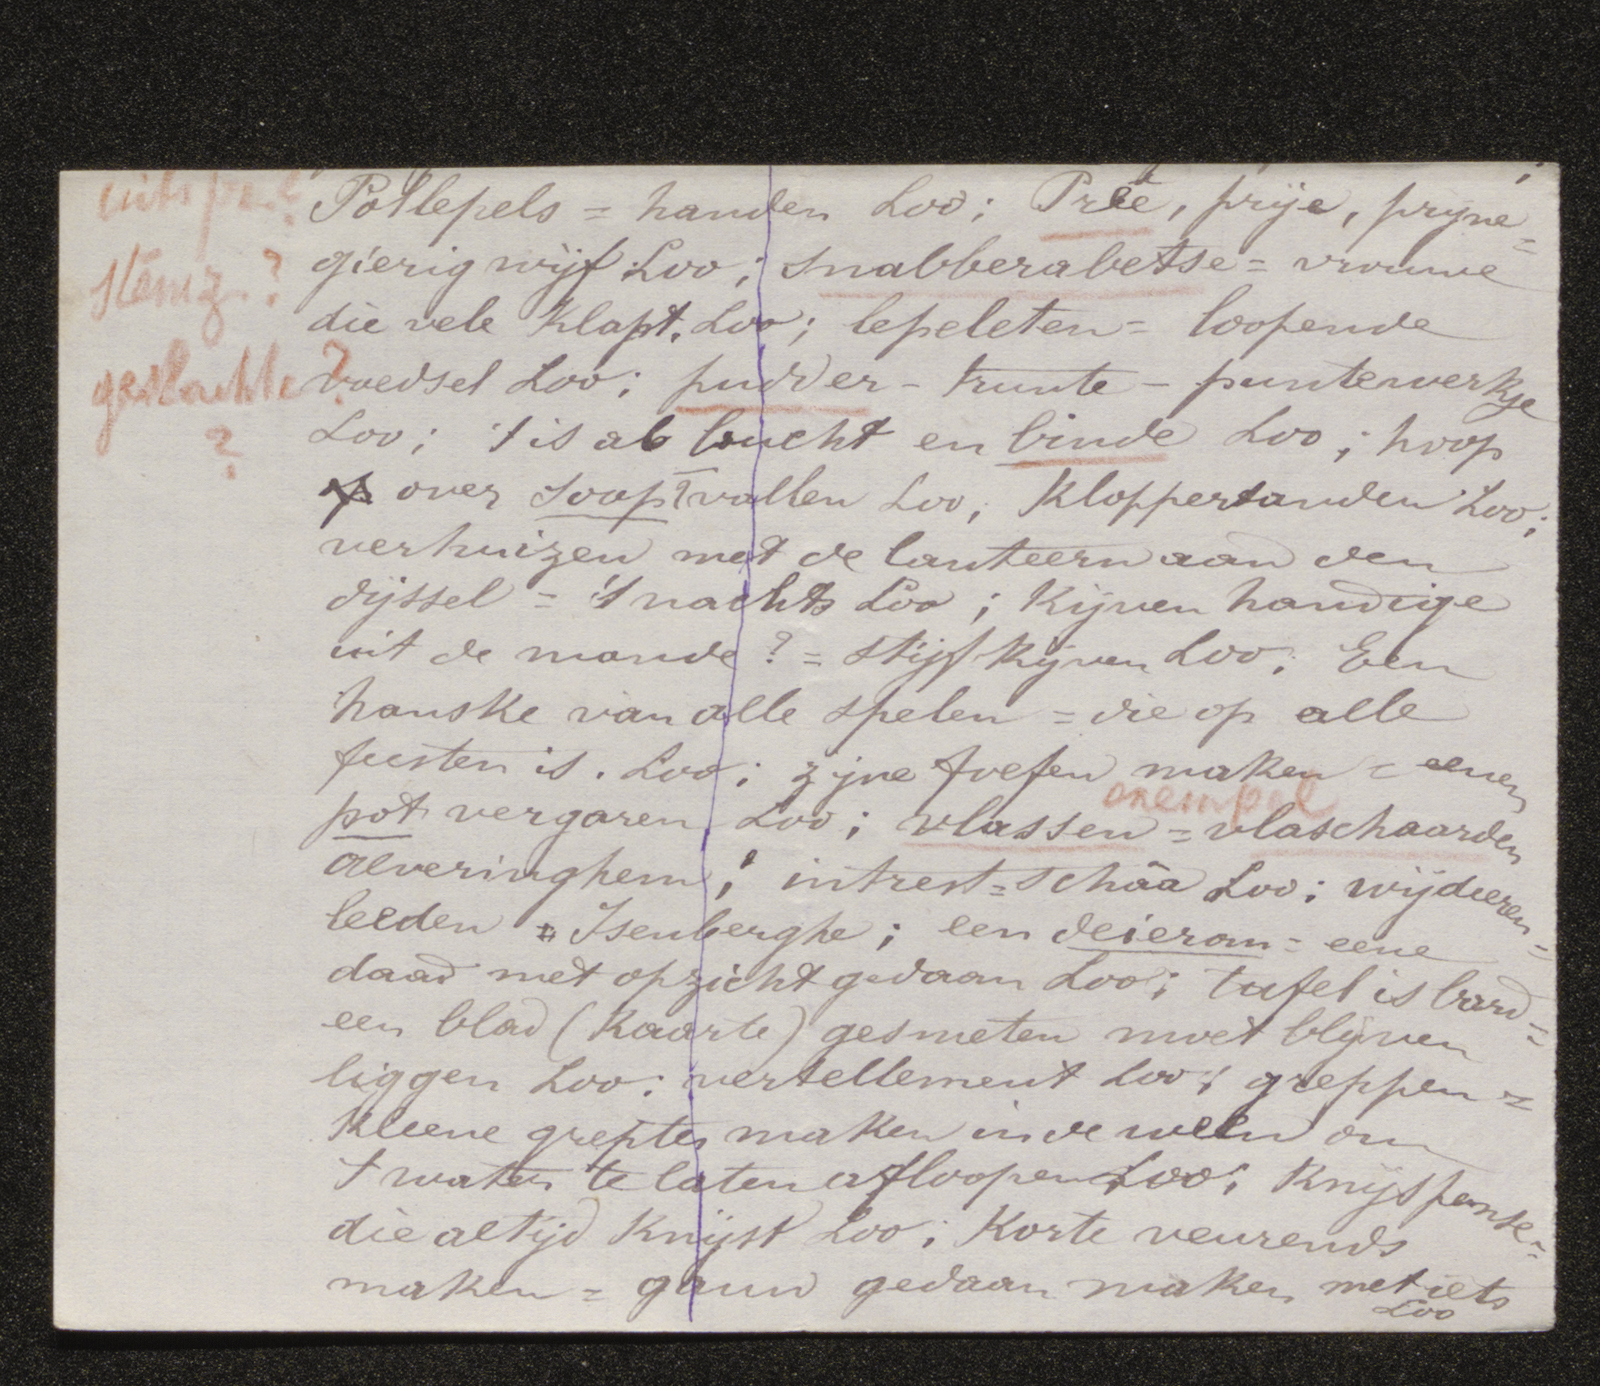 Pollepels = handen Loo; Prēe, prije, pryne =
gierig wijf Loo; snabberabetse = vrouwe
die vele klapt. Loo; lepeleten = loopende
voedsel Loo; pudder - trunte - puntenwerkje
Loo; 't is al loucht en binde Loo; hoop
over soop vallen Loo; Kloppertanden Loo;
verhuizen met de lanteern aan den
dijssel = 's nachts Loo; Kijven handige
uit de mande? = stijf kijven Loo; Een
hanske van alle spelen = die op alle
feesten is. Loo; zijne foefen maken = eenen
exempel
pot vergaren Loo; vlassen = vlaschaarden
Alveringhem; intrest = schâa Loo; wijdieren =
leeden = Isenberghe; een deierom = eene
daad met opzicht gedaan Loo; tafel is bard =
een blad (kaarte) gesmeten moet blijven
liggen Loo; vertellement Loo; greppen =
kleene greptes maken in de ween om
't water te laten afloopen Loo; Knijspense =
die altijd knijst Loo; Korte veurends
maken = gauw gedaan maken met iets
Loo
uitspr.?
stemz.?
geslachte?
?